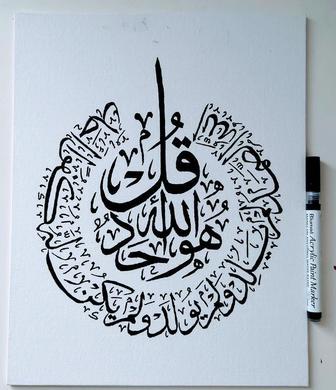 قل هو الله أحد
الله الصمد لم يلد ولم يولد ولم يكن له كفوا أحد
Acrylic Paint Marker